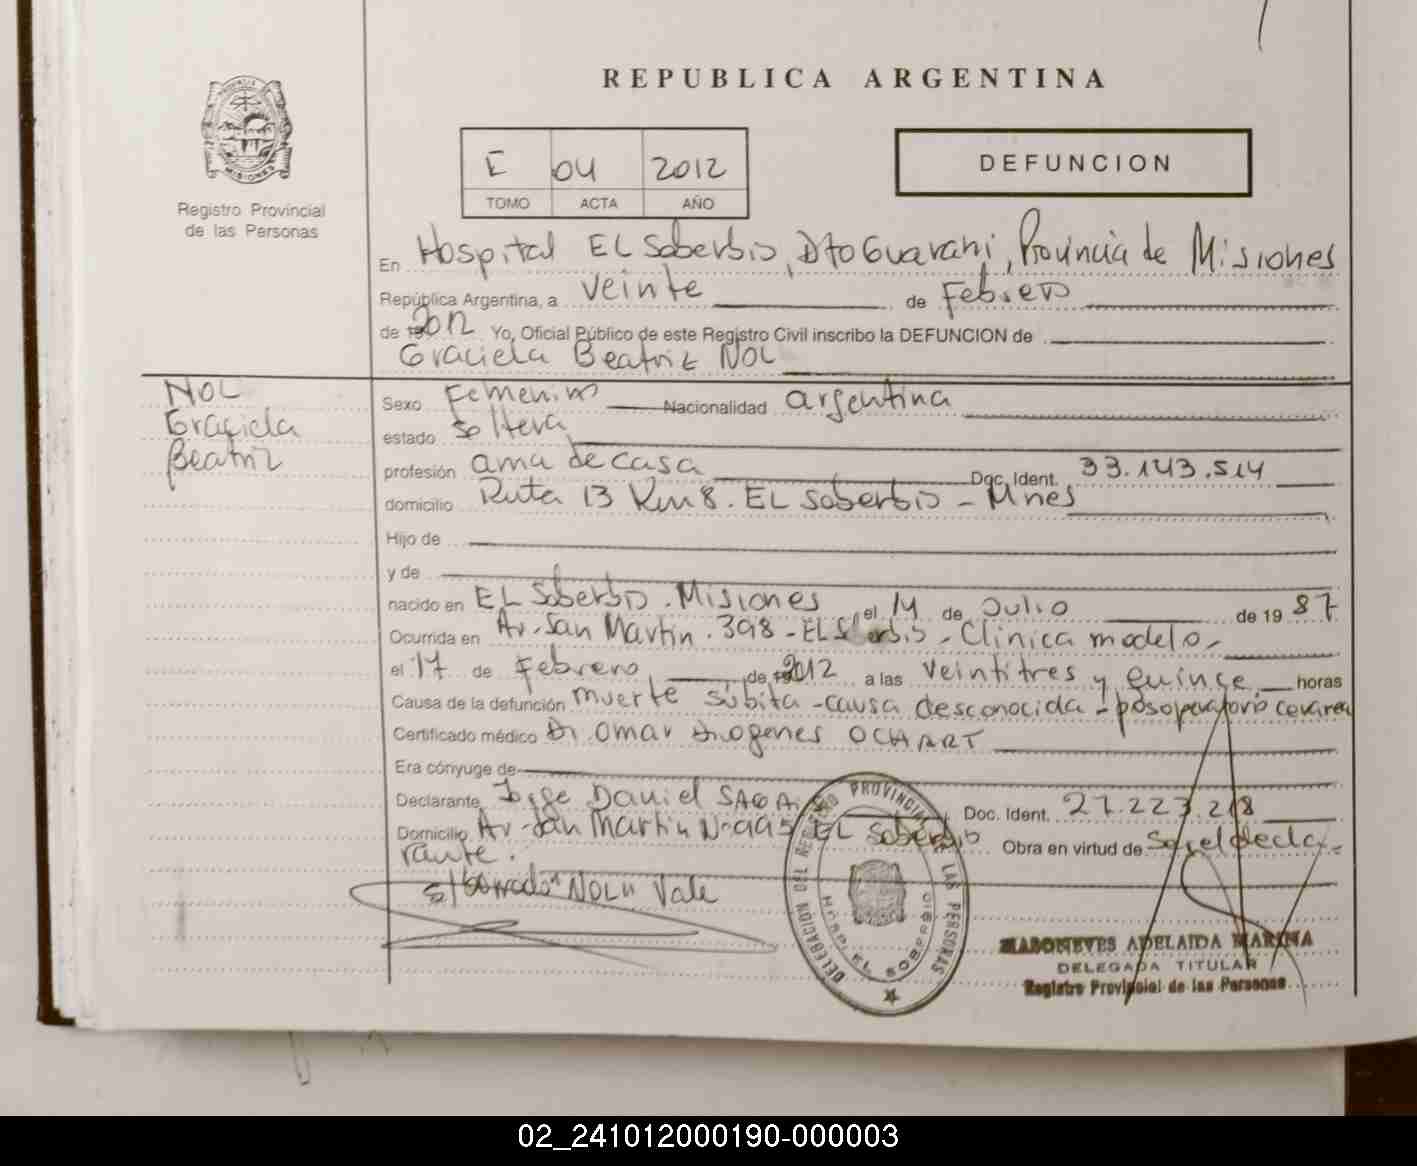 REPUBLICA ARGENTINA
E 04 2012
TOMO ACTA AÑO
DEFUNCION
Registro Provincial
de las Personas
En Hospital EL Soberbio, Dto Guarani, Provincia de Misiones
República Argentina, a veinte de Febrero
de 2012 Yo, Oficial Público de este Registro Civil inscribo la DEFUNCION de
Graciela Beatriz NOL
NOL
Graciela
Beatriz
Sexo Femenino Nacionalidad argentina
estado soltera
profesión ama de casa Doc. Ident. 33.143.514
domicilio Ruta 13 Km 8. EL Soberbio - Mnes
Hijo de
y de
nacido en EL Soberbio. Misiones el 14 de Julio de 1987
Ocurrida en Av. San Martin. 398 - EL Soberbio - Clinica modelo
el 17 de Febrero de 2012 a las veintitres y quince horas
Causa de la defunción muerte súbita - causa desconocida - posoperatorio cesarea
Certificado médico Dr. Omar Diogenes OCHART
Era cónyuge de
Declarante Jorge Daniel Doc. Ident. 27.223.218
Domicilio Av. San Martin N° 995 EL Soberbio Obra en virtud de Ser el decla-
rante.
s/borrado NOL Vale
DELEGACION DEL REGISTRO PROVINCIAL DE LAS PERSONAS
HOSP. EL SOBERBIO
MABONEVES ADELAIDA MARINA
DELEGADA TITULAR
Registro Provincial de las Personas
02_241012000190-000003